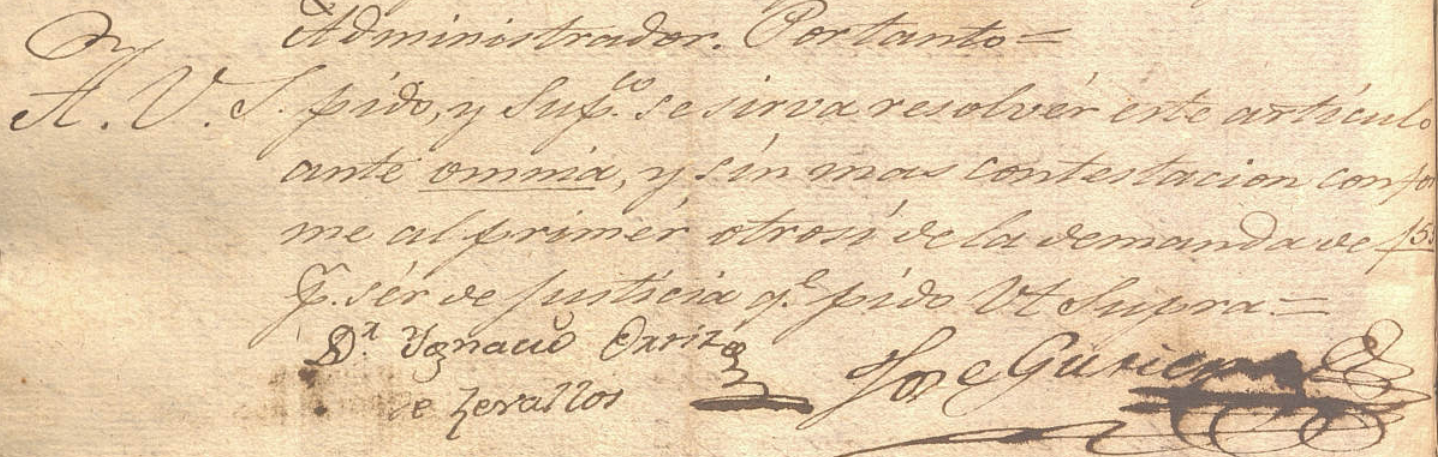 Administrador. Portanto=
A. V. S. pido, y Sup.co se sirva resolvér este artículo
ante omnia, y sín mas contestacion confor
me al primér otrosí de la demanda de
P. sér de justicia q.e pido Vt Supra=
D.r Ygnacio Ortiz
de Zevallos Jose Gutierrez